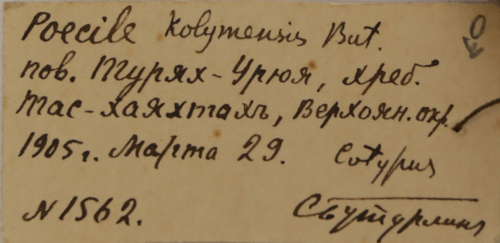 Poecile Kolymensis But.
пов. Турях-Урюя, хреб.
Тас-хаяхтахъ, Верхоян. окр.
1905г. Марта 29. Cotypus
N1562. СБутурлинъ